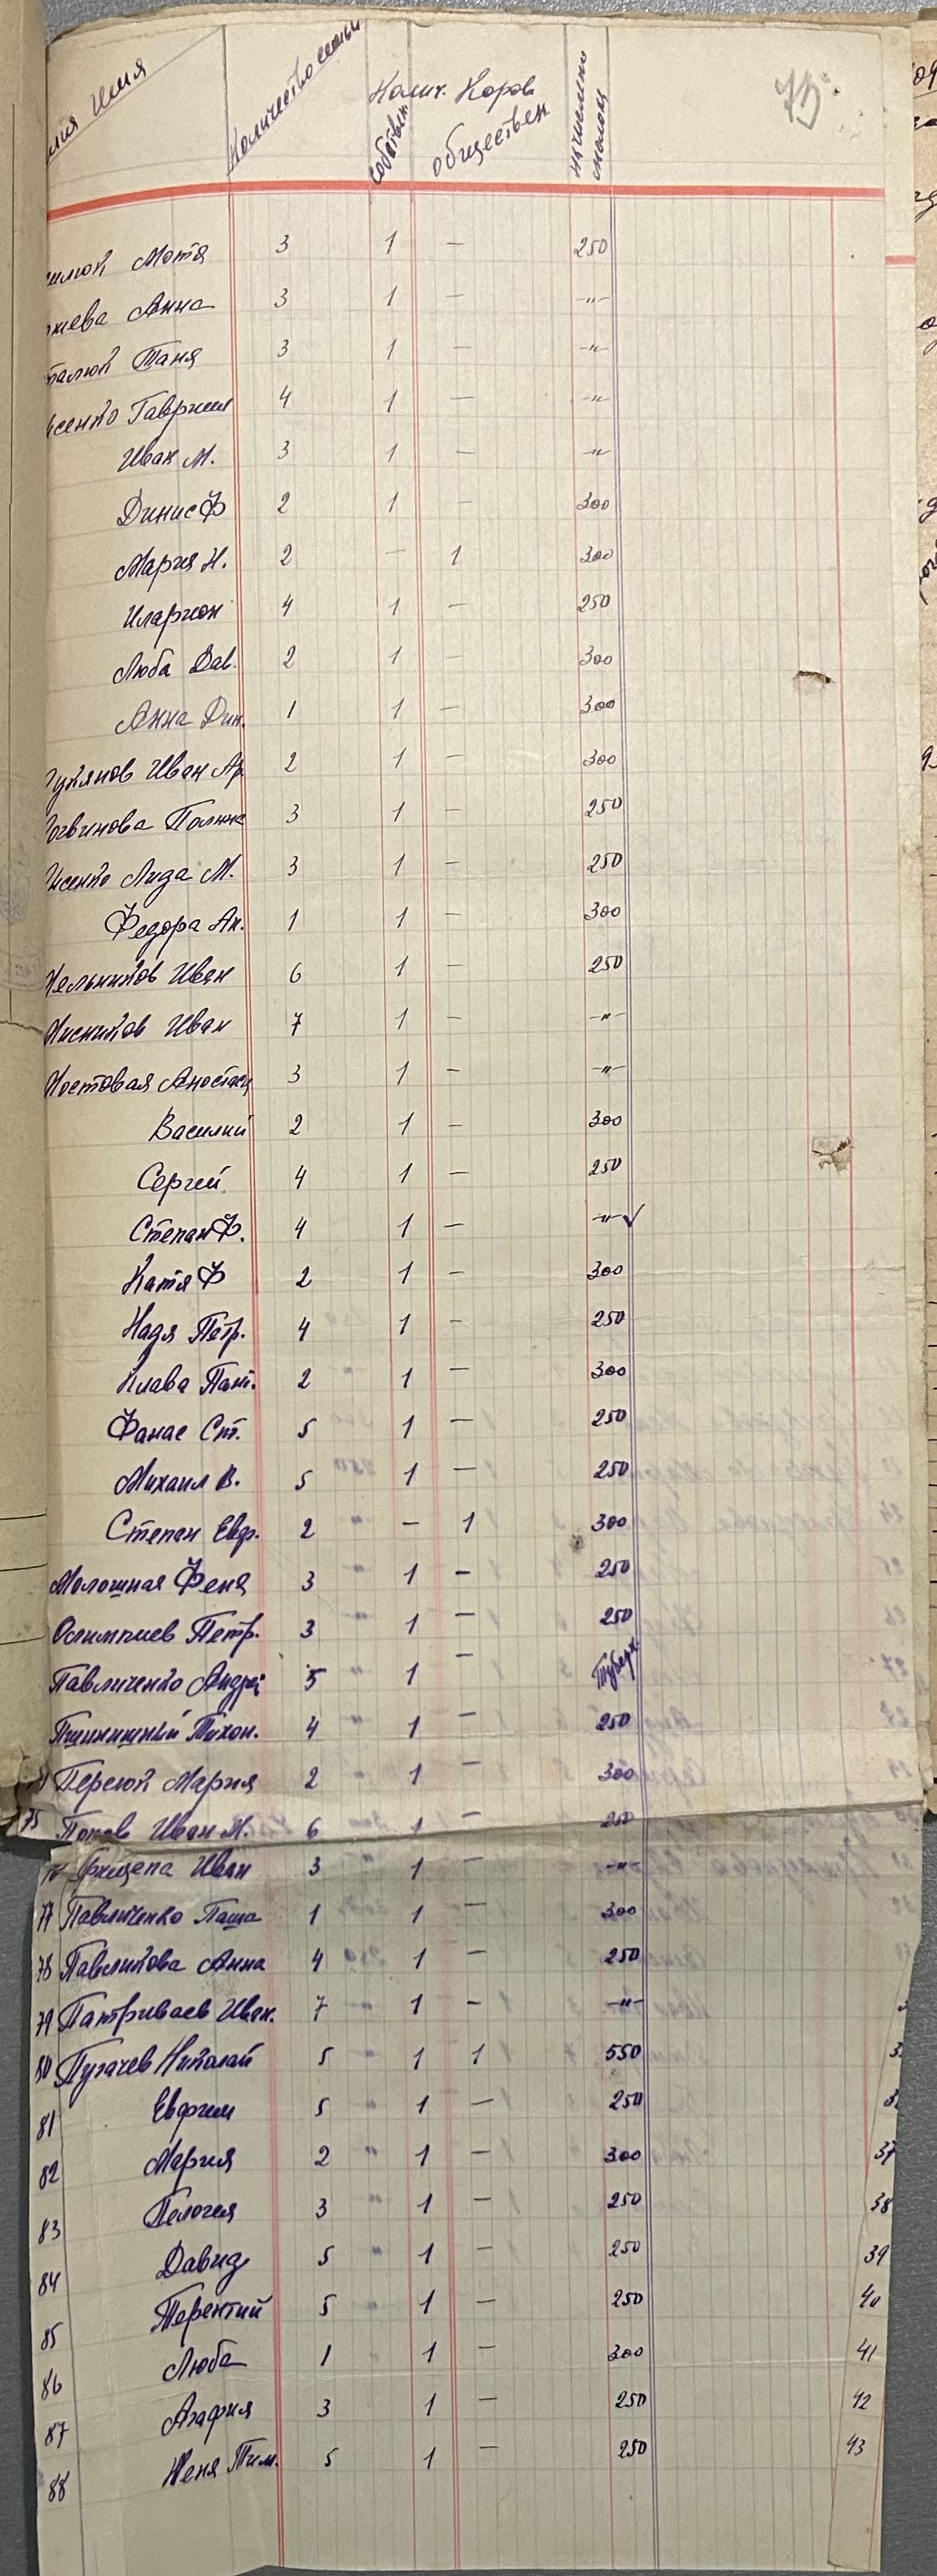 Имя Количество семьи Колич. Коров
собствен обществен молока
73
Мотя 3 1 — 250
Анна 3 1 — -"-
Таня 3 1 — -"-
Гавриил 4 1 — -"-
Иван М. 3 1 — -"-
Динис Ф 2 1 — 300
Мария Н. 2 — 1 300
Иларион 4 1 — 250
Люба Дав. 2 1 — 300
Анна Дин. 1 1 — 300
Иван Ар. 2 1 — 300
Полина 3 1 — 250
Лида М. 3 1 — 250
Федора Ан. 1 1 — 300
Мельников Иван 6 1 — 250
Иван 7 1 — -"-
Мостовая 3 1 — -"-
Василий 2 1 — 300
Сергий 4 1 — 250
Степан Ф. 4 1 — -"- ✓
Катя Ф 2 1 — 300
Надя Петр. 4 1 — 250
Клава Пант. 2 1 — 300
Фанас Ст. 5 1 — 250
Михаил В. 5 1 — 250
Степан Евф. 2 — 1 300
Молошная Феня 3 1 — 250
Олимпиев Петр. 3 1 — 250
Павличенко Андрей 5 1 — Туберк.
Пшинишный Тихон. 4 1 — 250
Мария 2 1 — 300
75 Попов Иван М. 6 1 — 250
Прищепа Иван 3 1 — -"-
77 Павличенко Паша 1 1 — 300
78 Павликова Анна 4 1 — 250
79 Патриваев Иван. 7 1 — -"-
80 Пугачев Николай 5 1 1 550
81 Евфим 5 1 — 250
82 Мария 2 1 — 300 37
83 Пелогия 3 1 — 250 38
84 Давид 5 1 — 250 39
85 Терентий 5 1 — 250 40
86 Люба 1 1 — 300 41
87 Агафия 3 1 — 250 42
88 Женя Тим. 5 1 — 250 43